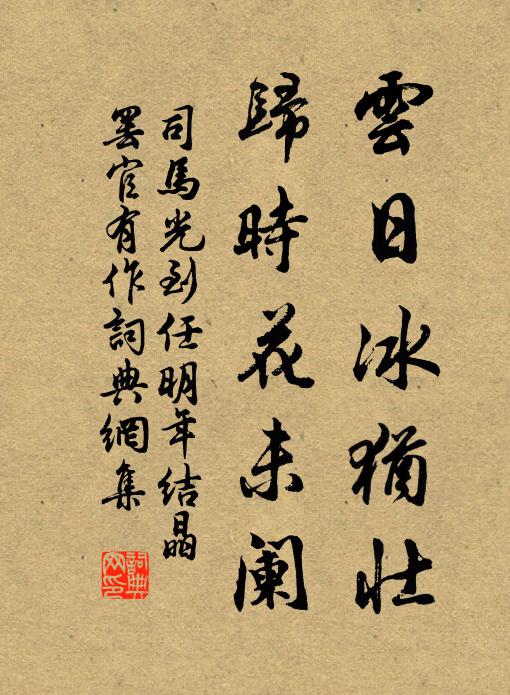 雲日冰猶壯
歸時花未闌
司馬光到任明年結晶
罢官有作詞典網集
詞典
网印